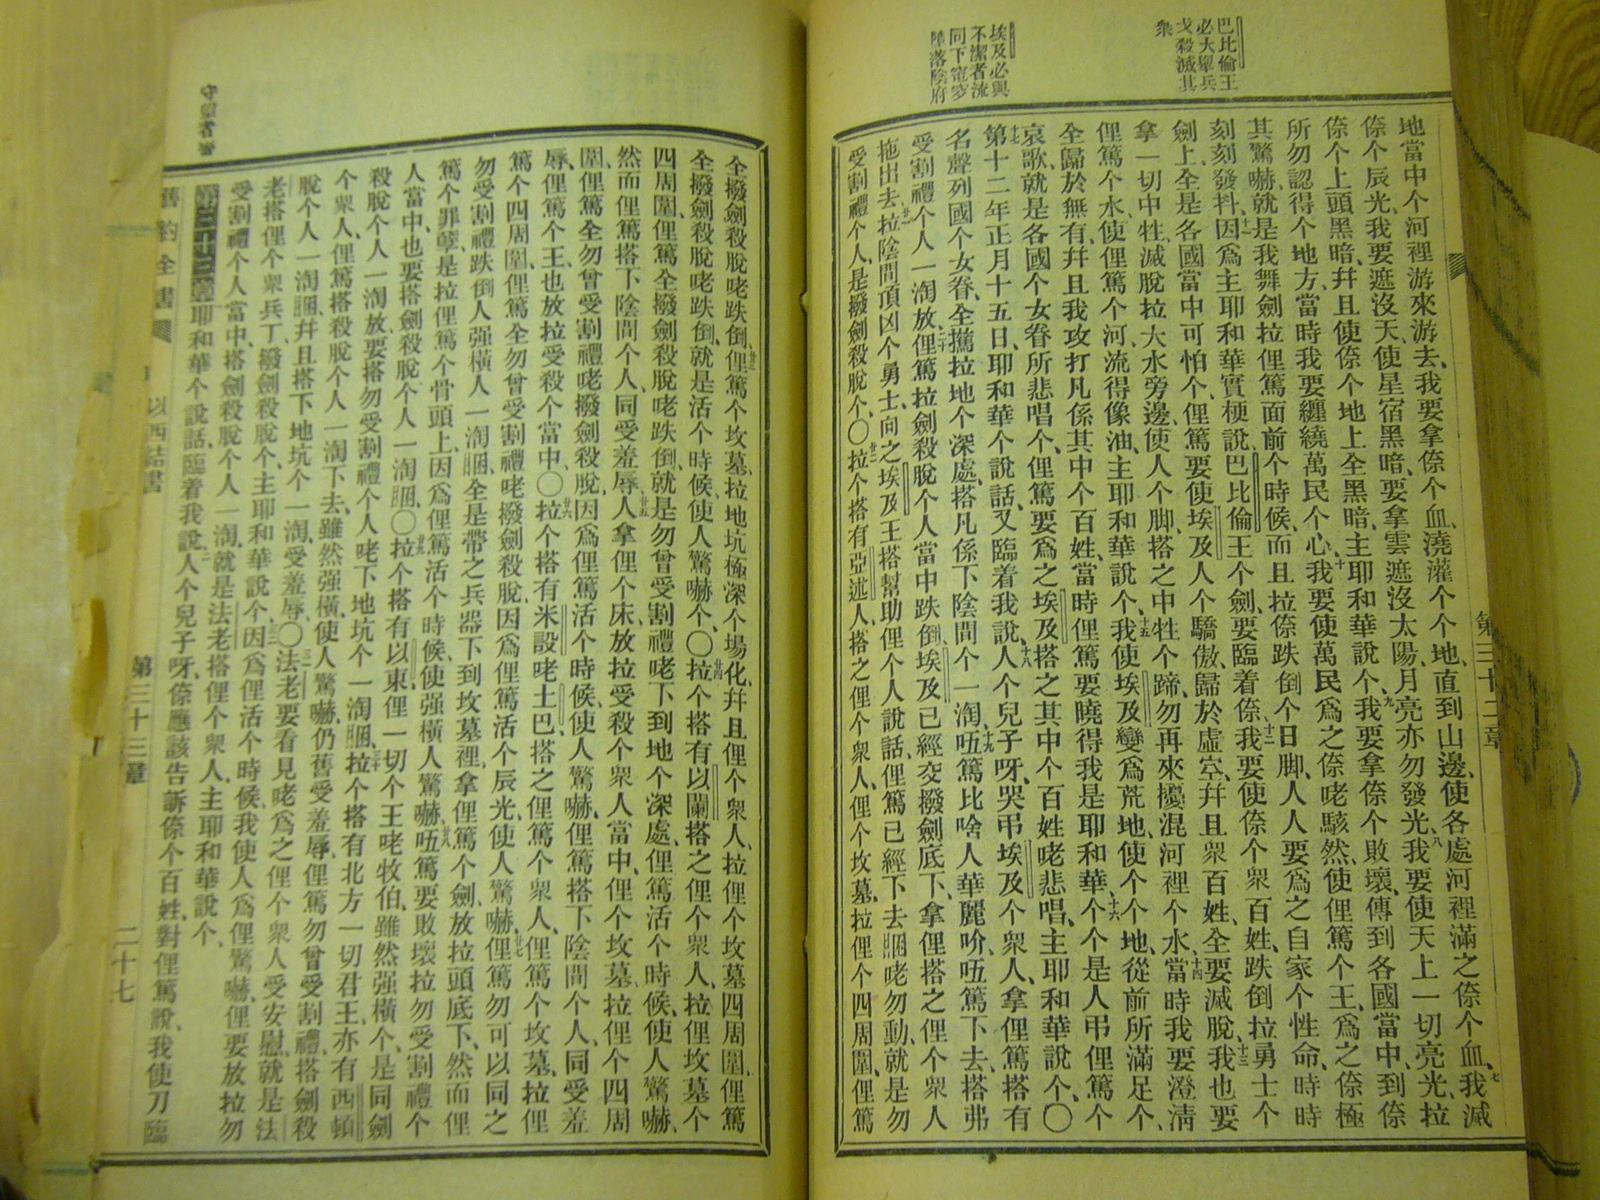 巴比倫王
必大舉兵
戈殺滅其
衆
埃及必與
不潔者流
同下窀穸
墮落陰府
第三十二章
地當中个河裡游來游去、我要拿倷个血、澆灌个个地、直到山邊、使各處河裡滿之倷个血、七我滅
倷个辰光、我要遮沒天、使星宿黑暗、要拿雲遮沒太陽、月亮亦勿發光、八我要使天上一切亮光、拉
倷个上頭黑暗、幷且使倷个地上全黑暗、主耶和華說个、九我要拿倷个敗壞、傳到各國當中、到倷
所勿認得个地方、當時我要纏繞萬民个心、十我要使萬民爲之倷咾駭然、使俚篤个王、爲之倷極
其驚嚇、就是我舞劍拉俚篤面前个時候、而且拉倷跌倒个日脚、人人要爲之自家个性命、時時
刻刻發抖、十一因爲主耶和華實梗說、巴比倫王个劍、要臨着倷、十二我要使倷个衆百姓、跌倒拉勇士个
劍上、全是各國當中可怕个、俚篤要使埃及人个驕傲、歸於虛空、幷且衆百姓、全要滅脫、十三我也要
拿一切中牲、滅脫拉大水旁邊、使人个脚、搭之中牲个蹄、勿再來擾混河裡个水、十四當時我要澄淸
俚篤个水、使俚篤个河、流得像油、主耶和華說个、十五我使埃及變爲荒地、使个个地、從前所滿足个、
全歸於無有、幷且我攻打凡係其中个百姓、當時俚篤要曉得我是耶和華、十六个个是人弔俚篤个
哀歌、就是各國个女眷所悲唱个、俚篤要爲之埃及搭之其中个百姓咾悲唱、主耶和華說个、〇
十七第十二年正月十五日、耶和華个說話、又臨着我說、十八人个兒子呀、哭弔埃及个衆人、拿俚篤搭有
名聲列國个女眷、全攜拉地个深處、搭凡係下陰間个一淘、十九㕶篤比啥人華麗吤、㕶篤下去、搭弗
受割禮个人一淘放、二十俚篤拉劍殺脫个人當中跌倒、埃及已經交撥劍底下、拿俚搭之俚个衆人
拖出去、廿一拉陰間頂凶个勇士、向之埃及王搭幫助俚个人說話、俚篤已經下去睏咾勿動、就是勿
受割禮个人、是撥劍殺脫个、〇廿二拉个搭有亞述人、搭之俚个衆人、俚个坟墓、拉俚个四周圍、俚篤
全撥劍殺脫咾跌倒、廿三俚篤个坟墓、拉地坑極深个場化、幷且俚个衆人、拉俚个坟墓四周圍、俚篤
全撥劍殺脫咾跌倒、就是活个時候、使人驚嚇个、〇廿四拉个搭有以蘭搭之俚个衆人、拉俚坟墓个
四周圍、俚篤全撥劍殺脫咾跌倒、就是勿曾受割禮咾下到地个深處、俚篤活个時候、使人驚嚇、
然而俚篤搭下陰間个人、同受羞辱、廿五人拿俚个床、放拉受殺个衆人當中、俚个坟墓、拉俚个四周
圍、俚篤全勿曾受割禮咾撥劍殺脫、因爲俚篤活个時候、使人驚嚇、俚篤搭下陰間个人、同受羞
辱、俚篤个王、也放拉受殺个當中、〇廿六拉个搭有米設咾土巴、搭之俚篤个衆人、俚篤个坟墓、拉俚
篤个四周圍、俚篤全勿曾受割禮咾撥劍殺脫、因爲俚篤活个辰光、使人驚嚇、廿七俚篤勿可以同之
勿受割禮跌倒人强橫人一淘睏、全是帶之兵器下到坟墓裡、拿俚篤个劍、放拉頭底下、然而俚
篤个罪孽、是拉俚篤个骨頭上、因爲俚篤活个時候、使强橫人驚嚇、廿八㕶篤要敗壞拉勿受割禮个
人當中、也要搭劍殺脫个人一淘睏、〇廿九拉个搭有以東、俚一切个王咾牧伯、雖然强橫个、是同劍
殺脫个人一淘放、要搭勿受割禮个人咾下地坑个一淘睏、三十拉个搭有北方一切君王、亦有西頓
个衆人、俚篤搭殺脫个人一淘下去、雖然强橫、使人驚嚇、仍舊受羞辱、俚篤勿曾受割禮、搭劍殺
脫个人一淘睏、幷且搭下地坑个一淘受羞辱、〇法老要看見咾爲之俚个衆人受安慰、就是法
老搭俚个衆兵丁、撥劍殺脫个、主耶和華說个、因爲俚活个時候、我使人爲俚驚嚇、俚要放拉勿
受割禮个人當中、搭劍殺脫个人一淘、就是法老搭俚个衆人、主耶和華說个、
第三十三章耶和華个說話、臨着我說、二人个兒子呀、倷應該告訴倷个百姓、對俚篤說、我使刀臨
舊約全書
以西結書
第三十三章
二十七